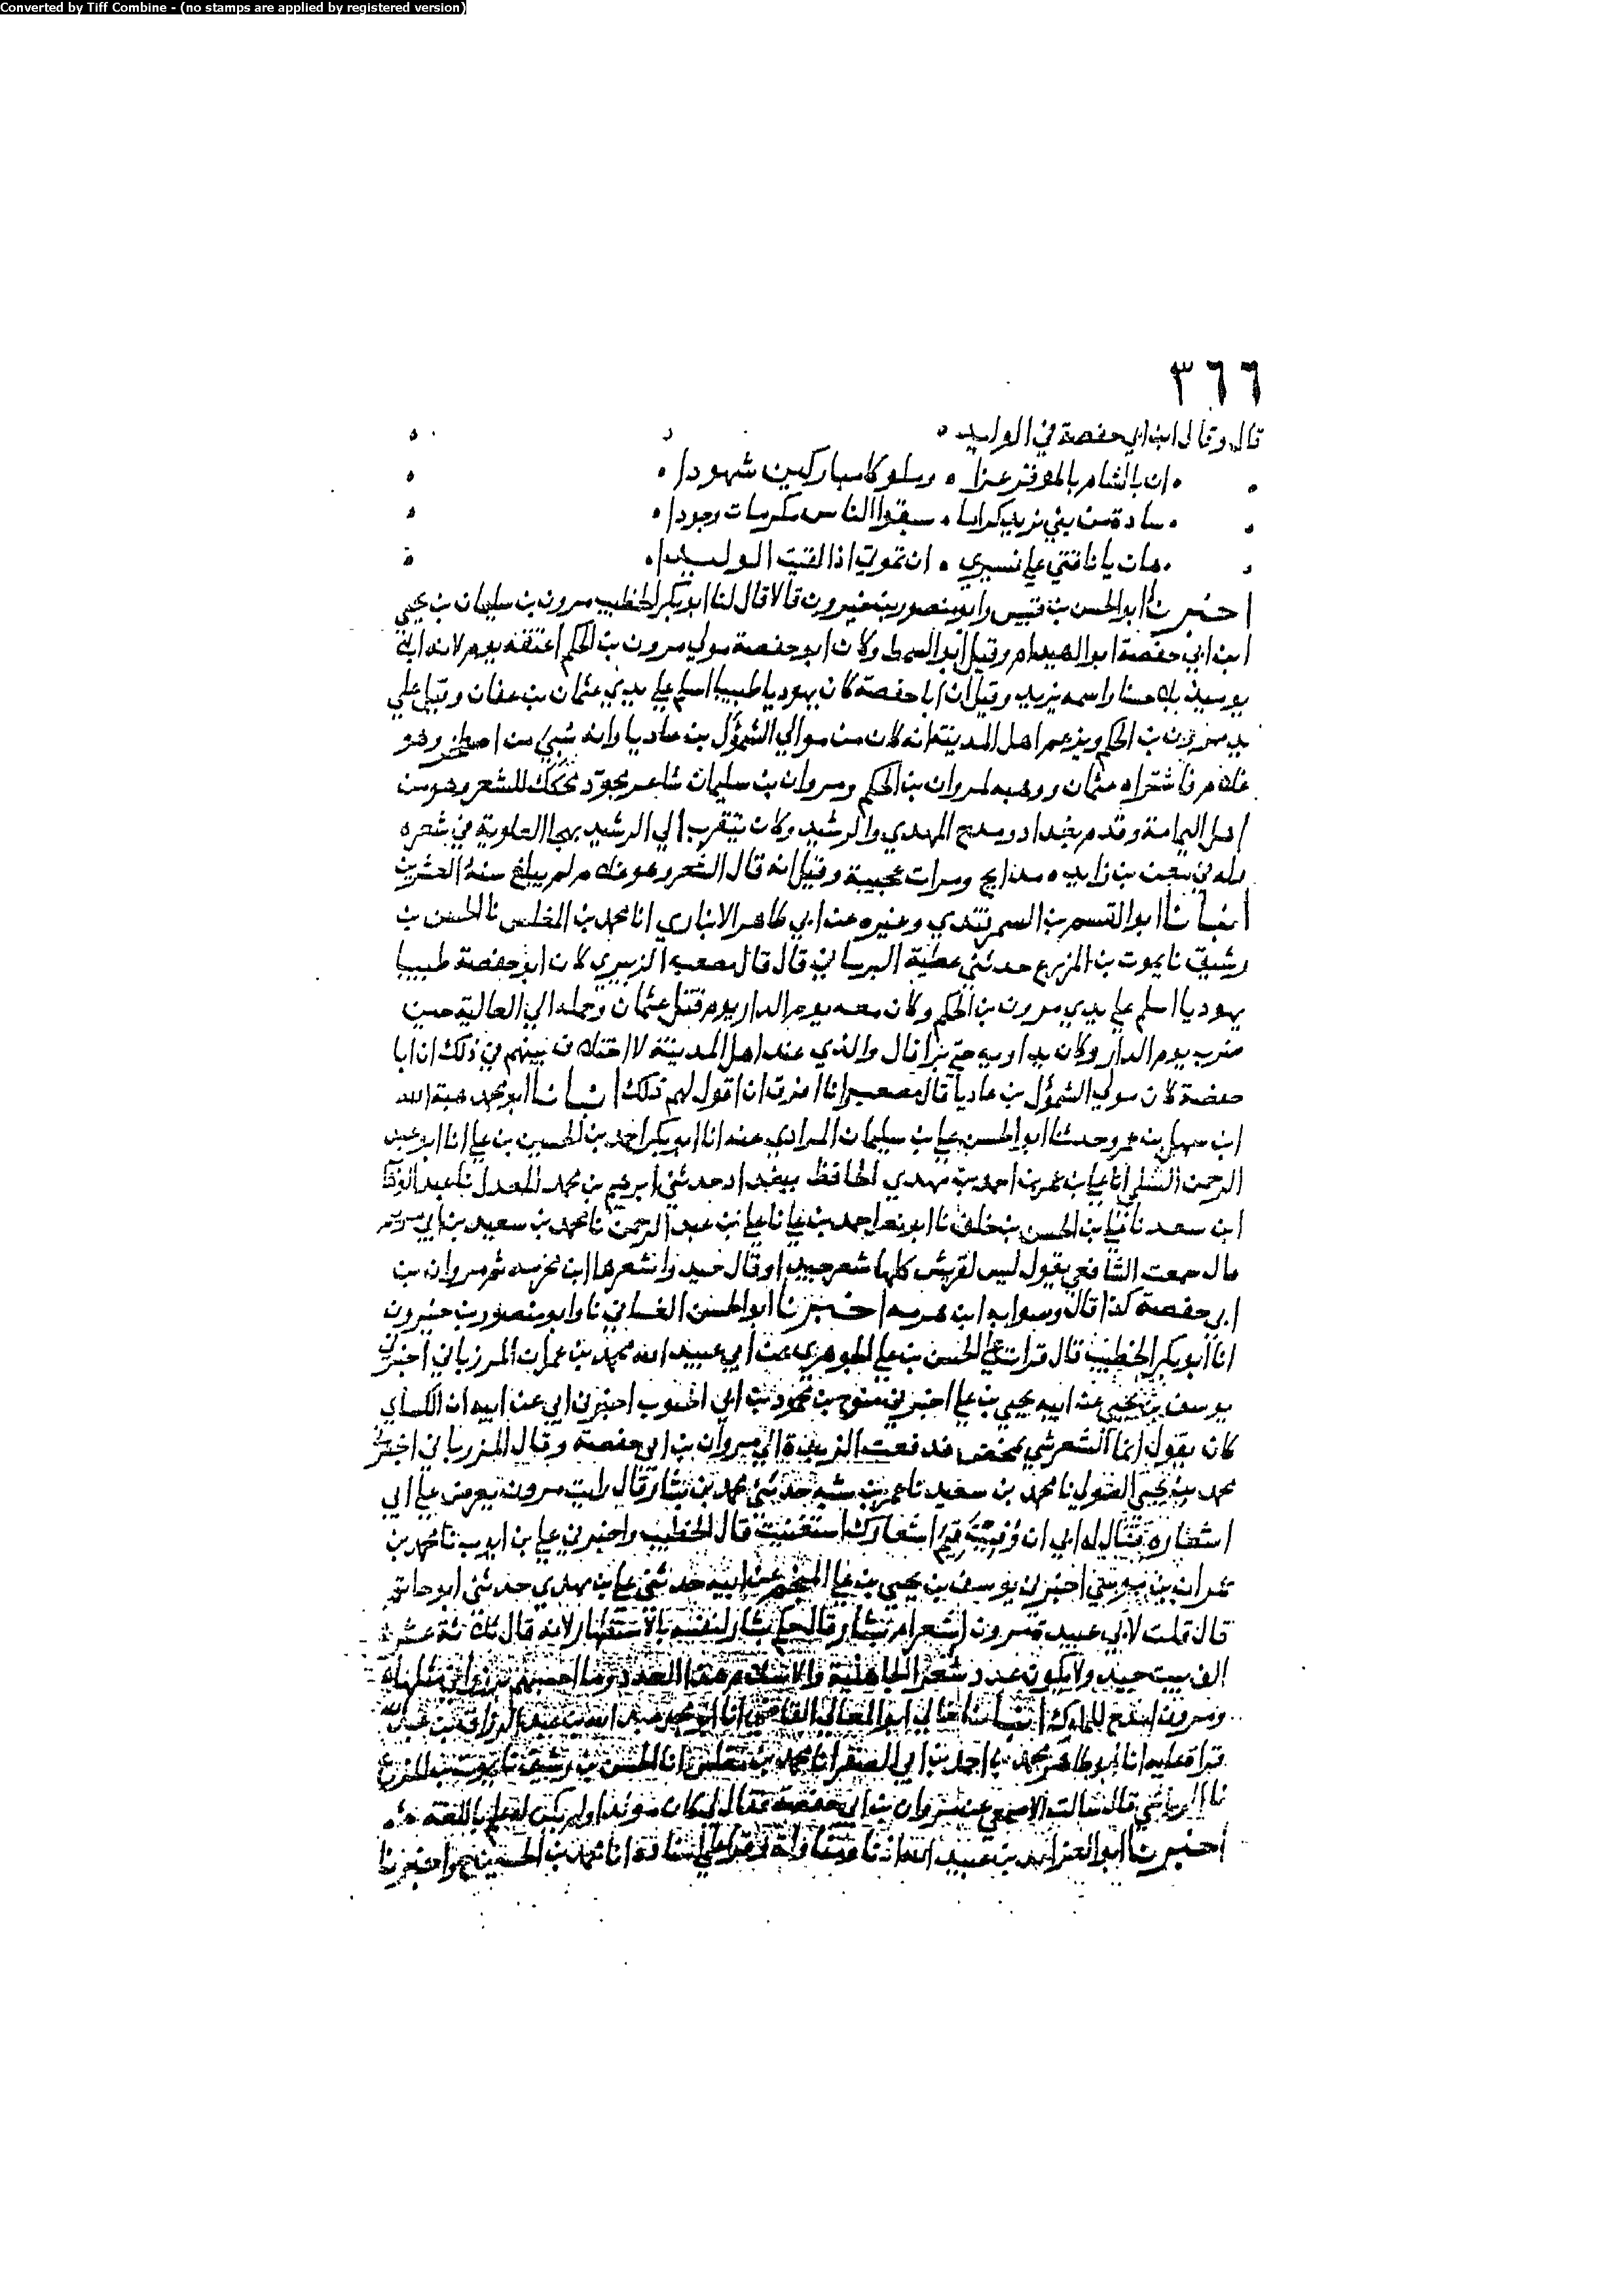 Converted by Tiff Combine - (no stamps are applied by registered version)
٣٦٦
قال وقال ابن ابي حفصة في الوليد
ان بالشام بالموقر عزا وملوكا مباركين شهودا
سادة من بني يزيد كراما سبقوا الناس مكرمات وجودا
هان يا ناقتي علي فسيري ان تموتي اذا لقيت الوليدا
اخبرنا ابو الحسن بن قبيس وابو منصور بن خيرون قالا قال لنا ابو بكر الخطيب مرون بن سليمان بن يحيى
ابن ابي حفصة ابو الهيدام وقيل ابو السمط وكان ابو حفصة مولي مرون بن الحكم اعتقه يوم الدار لانه
يومئذ بلاء حسنا واسمه يزيد وقيل ان ابا حفصة كان يهوديا طبيبا اسلم علي يدي عثمان بن عفان وقيل علي
يد مرون بن الحكم ويزعم اهل المدينة انه كان من موالي السموؤل بن عاديا وانه سبي من اصطخر وهو
غلام فاشتراه عثمان ووهبه لمروان بن الحكم ومروان بن سليمان شاعر مجود محكك للشعر وهو من
اهل اليمامة وقدم بغداد ومدح المهدي والرشيد وكان يتقرب الي الرشيد بهجا العلوية في شعره
وله في معن بن زايده مدايح ومراث عجيبة وقيل انه قال الشعر وهو غلام لم يبلغ سنه العشرين
انبانا ابو القسم بن السمرقندي وغيره عن ابي طاهر الانباري انا محمد بن المغلس نا الحسن بن
رشيق نا يموت بن المزرع حدثني عطية قال قال مصعب الزبيري كان ابو حفصة طبيبا
يهوديا اسلم علي يدي مرون بن الحكم وكان معه يوم الدار يوم قتل عثمان وحمله الي العالية حين
ضرب يوم الدار وكان يداويه حتي برا قال والذي عند اهل المدينة لا اختلاف بينهم في ذلك ان ابا
حفصة كان مولي السموؤل بن عاديا قال مصعب انا افرق ان اقول لهم ذلك انبانا ابو محمد هبة الله
ابن سهل بن عمر وحدثنا ابو الحسن علي بن سليمان المرادي عنه انا ابو بكر احمد بن الحسين بن علي انا ابو عبد
الرحمن السلمي انا علي بن عمر بن احمد بن مهدي الحافظ ببغداد حدثني ابرهيم بن محمد المعدل نا عبد
ابن سعد نا علي بن الحسن بن خلف نا ابو احمد بن علي نا علي بن عبد الرحمن نا محمد بن سعيد بن ابي مريم
قال سمعت الشافعي يقول ليس لقريش كلها شعر جيد او قال جيد واشعرها ابن ثم مروان بن
ابي حفصة كذا قال وصوابه ابن هرمه اخبرنا ابو الحسن الغساني نا وابو منصور بن خيرون
انا ابو بكر الخطيب قال قرات علي الحسن بن علي الجوهري عن ابي عبيد الله محمد بن عمران المرزباني اخبرني
يوسف بن يحيى عن ابيه يحيى بن علي اخبرني متوج بن محمود بن ابي الجنوب اخبرني ابي عن ابيه ان الكساي
كان يقول انما الشعر شي تمخض فدفعت الزبدة الي مروان بن ابي حفصة وقال المرزباني اخبرني
محمد بن يحيى الصولي نا محمد بن سعيد نا عمر بن شبه حدثني محمد بن بشار قال رايت مرون يعرض علي ابي
اشعاره فقال له ابي ان قيم اشعارك استغنيت قال الخطيب واخبرني علي بن ايوب نا محمد بن
عمران بن موسى اخبرني يوسف بن يحيى بن علي المنجم عن ابيه حدثني علي بن مهدي حدثني ابو حاتم
قال قلت لابي عبيد مرون اشعر ام بشار قال حكم بشار لنفسه بالاستظهار لانه قال ثلاثة عشر
الف بيت جيد ولا يكون عدد شعر الجاهلية والاسلام هذا العدد وما احسبهم
ومرون امدح للملوك انبانا خالي ابو المعالي القاضي انا ابو محمد عبد الله بن عبد الرزاق بن عبد الله
قراة عليه انا ابو طاهر محمد بن احمد بن ابي الصقر انا محمد بن مغلس انا الحسن بن رشيق نا يموت بن المزرع
نا الرياشي قال سالت الاصمعي عن مروان بن ابي حفصة فقال لي كان مولدا ولم يكن له علم باللغة
اخبرنا ابو العز احمد بن عبيد الله اذنا ومناولة وقرا علي اسناده انا محمد بن الحسين ح واخبرنا